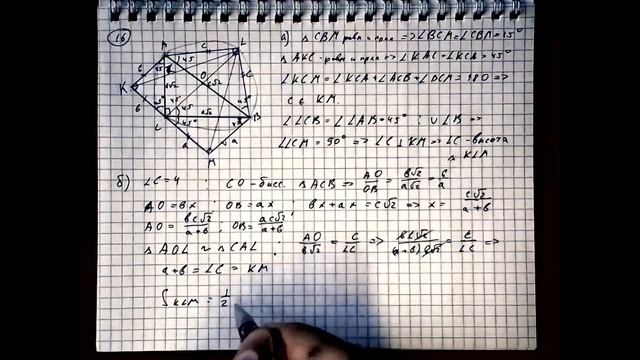 16
а) △ CBM равн и прям => ∠BCM = ∠CBM = 45°
△ AKC - равн и прям => ∠KAC = ∠KCA = 45°
∠KCM = ∠KCA + ∠ACB + ∠BCM = 180 =>
C ∈ KM.
∠LCB = ∠LAB = 45° : ∪LB =>
∠LCM = 90° => LC ⊥ KM => LC - высота
△ KLM
б) LC = 4 : CO - бисс. △ ACB => AO/OB = b√2/a√2 = b/a
AO = bx ; OB = ax ; bx + ax = c√2 => x = c√2/(a+b)
AO = bc√2/(a+b) , OB = ac√2/(a+b) ;
△ AOL ~ △ CAL ; AO/b√2 = c/LC => bc√2/(a+b)b√2 = c/LC =>
a+b = LC = KM
S KLM = 1/2
K
A
L
O
C
B
M